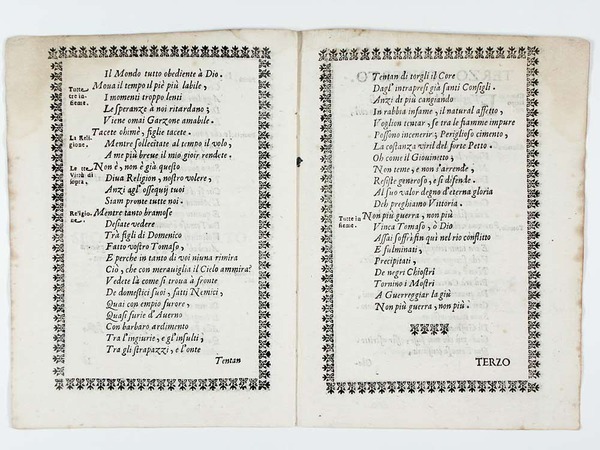 Il Mondo tutto obediente à Dio.
Tutte tre insieme. Moua il tempo il piè più labile,
I momenti troppo lenti
Le speranze à noi ritardano;
Viene omai Garzone amabile.
La Religione. Tacete ohimè, figlie tacete.
Mentre sollecitate al tempo il volo,
A me più breue il mio gioir rendete.
Le tre Virtù di sopra. Non è, non è già questo
Diua Religion, nostro volere,
Anzi agl' ossequij tuoi
Siam pronte tutte noi.
Religione. Mentre tanto bramose
Desiate vedere
Trà figli di Domenico
Fatto vostro Tomaso,
E perche in tanto di voi niuna rimira
Ciò, che con merauiglia il Cielo ammira?
Vedete là come si troua à fronte
De domestici suoi, fatti Nemici,
Quai con empio furore,
Quasi furie d'Auerno
Con barbaro ardimento
Tra l'ingiurie, e gl'insulti,
Tra gli strapazzi, e l'onte
Tentan
Tentan di torgli il Core
Dagl' intrapresi già santi Consigli.
Anzi di più cangiando
In rabbia infame, il natural affetto,
Voglion tentar, se tra le fiamme impure
Possono incenerir; Periglioso cimento,
La costanza viril del forte Petto.
Oh come il Giouinetto,
Non teme, e non s'arrende,
Resiste generoso, e si difende.
Al suo valor degno d'eterna gloria
Deh preghiamo Vittoria.
Tutte insieme. Non più guerra, non più
Vinca Tomaso, ò Dio
Assai soffrì fin quì nel rio conflitto
E fulminati,
Precipitati,
De negri Chiostri
Tornino i Mostri
A Guerreggiar la giù
Non più guerra, non più.
TERZO